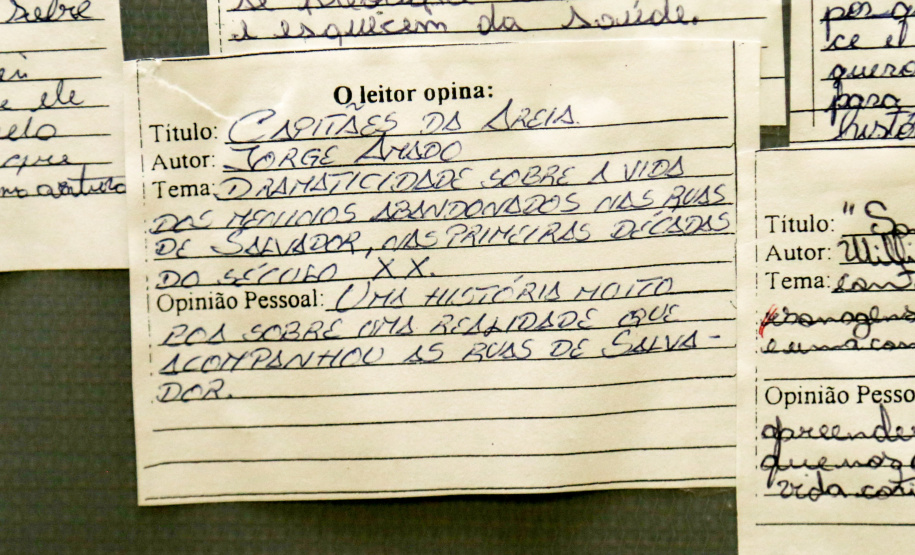 sobre
ele
que
e esquecem da saúde.
O leitor opina:
Título: CAPITÃES DA AREIA.
Autor: JORGE AMADO
Tema: DRAMATICIDADE SOBRE A VIDA
DOS MENINOS ABANDONADOS NAS RUAS
DE SALVADOR, NAS PRIMEIRAS DÉCADAS
DO SÉCULO XX.
Opinião Pessoal: UMA HISTÓRIA MUITO
BOA SOBRE UMA REALIDADE QUE
ACOMPANHOU AS RUAS DE SALVA-
DOR.
por q
ce el
para
histó
Título: "So
Autor: Willi
Tema: cont
e uma com
Opinião Pesso
aprender
vida